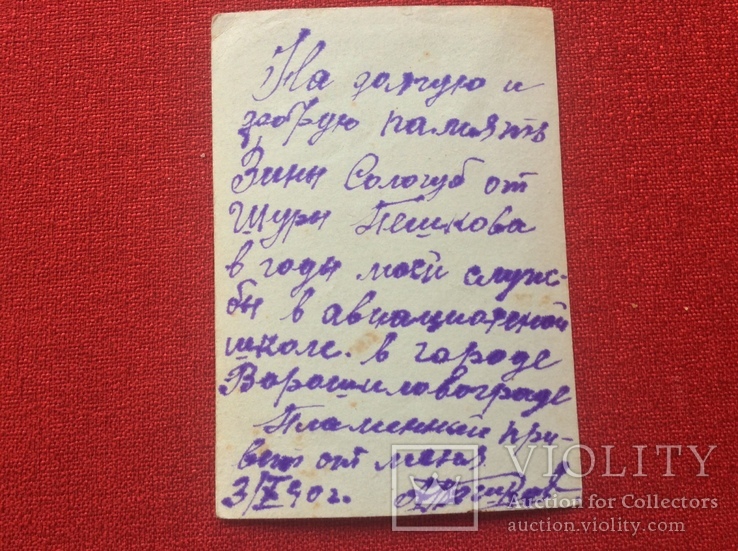 На долгую и
добрую память
Зины Сологуб от
Шуры Пешкова
в годы моей служ-
бы в авиационой
школе. в городе
Ворошиловограде
Пламенный при-
вет от меня
3/X 40 г. АПешков
VIOLITY
Auction for Collectors
auction.violity.com